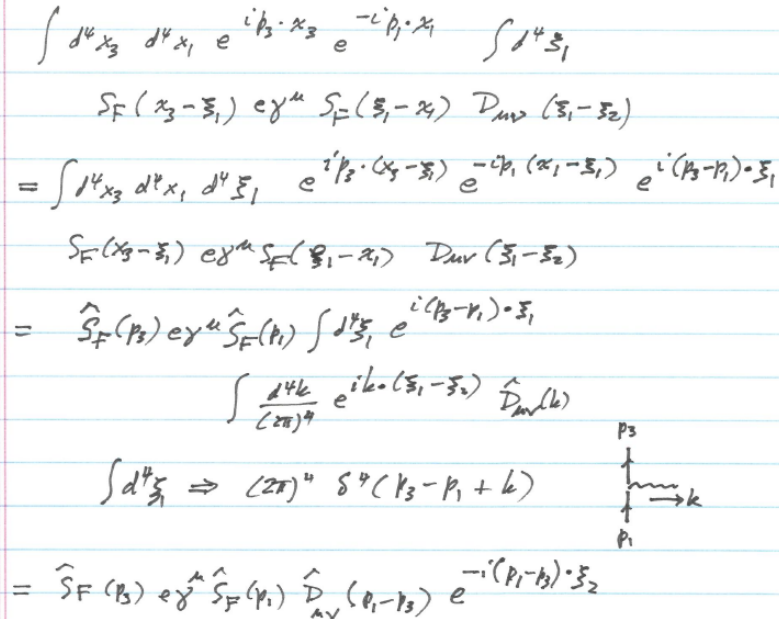 ∫ d⁴x₃ d⁴x₁ e^{ip₃·x₃} e^{-ip₁·x₁} ∫d⁴ξ₁
S_F(x₃-ξ₁) eγ^μ S_F(ξ₁-x₁) D_{μν}(ξ₁-ξ₂)
= ∫d⁴x₃ d⁴x₁ d⁴ξ₁ e^{ip₃·(x₃-ξ₁)} e^{-ip₁(x₁-ξ₁)} e^{i(p₃-p₁)·ξ₁}
S_F(x₃-ξ₁) eγ^μ S_F(ξ₁-x₁) D_{μν}(ξ₁-ξ₂)
= Ŝ_F(p₃) eγ^μ Ŝ_F(p₁) ∫d⁴ξ₁ e^{i(p₃-p₁)·ξ₁}
∫ d⁴k/(2π)⁴ e^{ik·(ξ₁-ξ₂)} D̂_{μν}(k)
p₃
∫d⁴ξ₁ ⇒ (2π)⁴ δ⁴(p₃-p₁+k)
→k
p₁
= Ŝ_F(p₃) eγ^μ Ŝ_F(p₁) D̂_{μν}(p₁-p₃) e^{-i(p₁-p₃)·ξ₂}